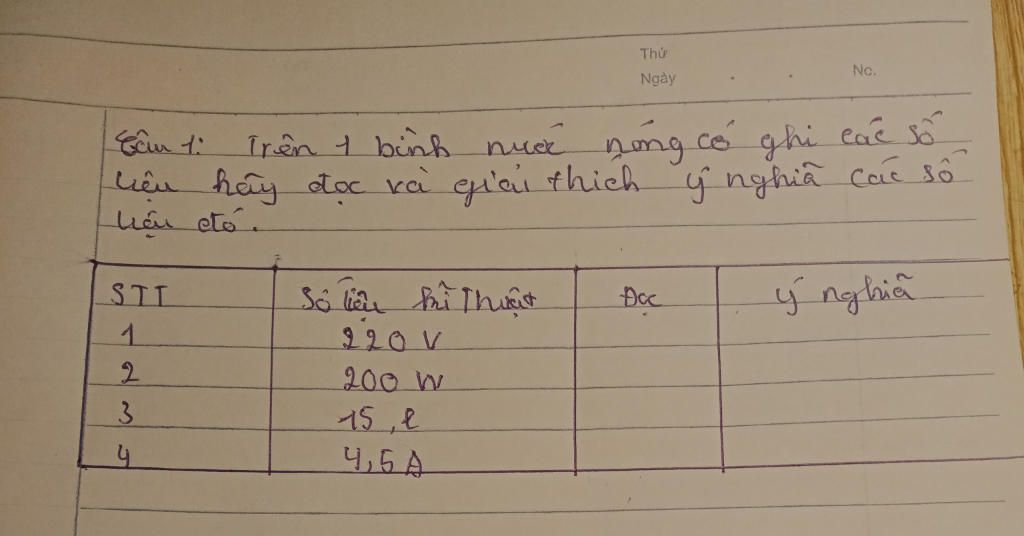 Thứ
Ngày . . No.
Câu 1: Trên 1 bình nước nóng có ghi các số
liệu hãy đọc và giải thích ý nghĩa các số
liệu đó.
STT Số liệu kĩ Thuật Đọc ý nghĩa
1 220 V
2 200 W
3 15, l
4 4,5 A